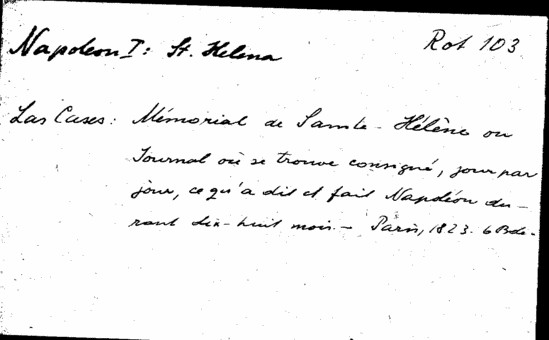 Napoleon I: St. Helena
Rot 103
Las Cases: Mémorial de Sainte-Hélène ou
Journal où se trouve consigné, jour par
jour, ce qu'a dit et fait Napoléon du-
rant dix-huit mois. - Paris, 1823. 6 Bde.